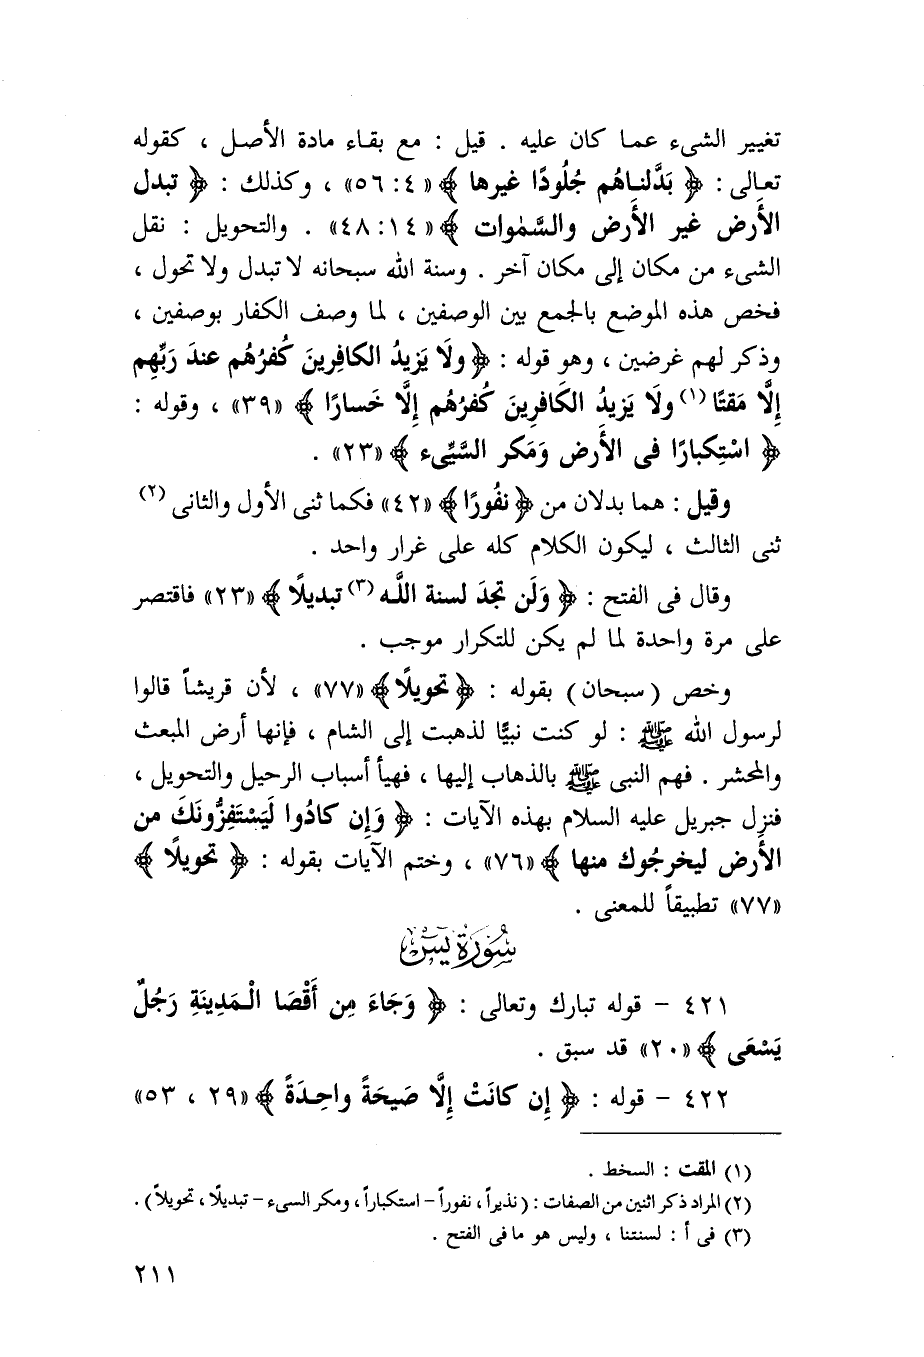 تغيير الشىء عما كان عليه . قيل : مع بقاء مادة الأصل ، كقوله
تعالى : ﴿ بَدَّلناهُم جُلُودًا غيرها ﴾ «٤ : ٥٦» ، وكذلك : ﴿ تبدل
الأَرض غير الأَرض والسَّمٰوات ﴾ «١٤ : ٤٨» . والتحويل : نقل
الشىء من مكان إلى مكان آخر . وسنة الله سبحانه لا تبدل ولا تحول ،
فخص هذه الموضع بالجمع بين الوصفين ، لما وصف الكفار بوصفين ،
وذكر لهم غرضين ، وهو قوله : ﴿ ولَا يَزيدُ الكافِرينَ كُفرُهُم عندَ رَبِّهِم
إلَّا مَقتًا (١) ولَا يَزيدُ الكَافرينَ كُفرُهُم إلَّا خَسارًا ﴾ «٣٩» ، وقوله :
﴿ اسْتِكبارًا فى الأَرض وَمَكر السَّيِّىء ﴾ «٢٣» .
وقيل : هما بدلان من ﴿ نفُورًا ﴾ «٤٢» فكما ثنى الأول والثانى (٢)
ثنى الثالث ، ليكون الكلام كله على غرار واحد .
وقال فى الفتح : ﴿ وَلَن تجدَ لسنة اللَّه (٣) تبديلًا ﴾ «٢٣» فاقتصر
على مرة واحدة لما لم يكن للتكرار موجب .
وخص (سبحان) بقوله : ﴿ تحويلًا ﴾ «٧٧» ، لأن قريشاً قالوا
لرسول الله ﷺ : لو كنت نبيًّا لذهبت إلى الشام ، فإنها أرض المبعث
والمحشر . فهم النبى ﷺ بالذهاب إليها ، فهيأ أسباب الرحيل والتحويل ،
فنزل جبريل عليه السلام بهذه الآيات : ﴿ وَإِن كادُوا لَيَسْتَفِزُّونَكَ من
الأَرض ليخرجُوك منها ﴾ «٧٦» ، وختم الآيات بقوله : ﴿ تحويلًا ﴾
«٧٧» تطبيقاً للمعنى .
سُورَة يسٓ
٤٢١ – قوله تبارك وتعالى : ﴿ وَجَاءَ مِن أَقْصَا الْمَدِينَةِ رَجُلٌ
يَسْعَى ﴾ «٢٠» قد سبق .
٤٢٢ – قوله : ﴿ إن كانَتْ إلَّا صَيحَةً واحِدَةً ﴾ «٢٩ ، ٥٣»
(١) المقت : السخط .
(٢) المراد ذكر اثنين من الصفات : (نذيراً ، نفوراً – استكباراً ، ومكر السىء – تبديلًا ، تحويلاً) .
(٣) فى أ : لسنتنا ، وليس هو ما فى الفتح .
٢١١